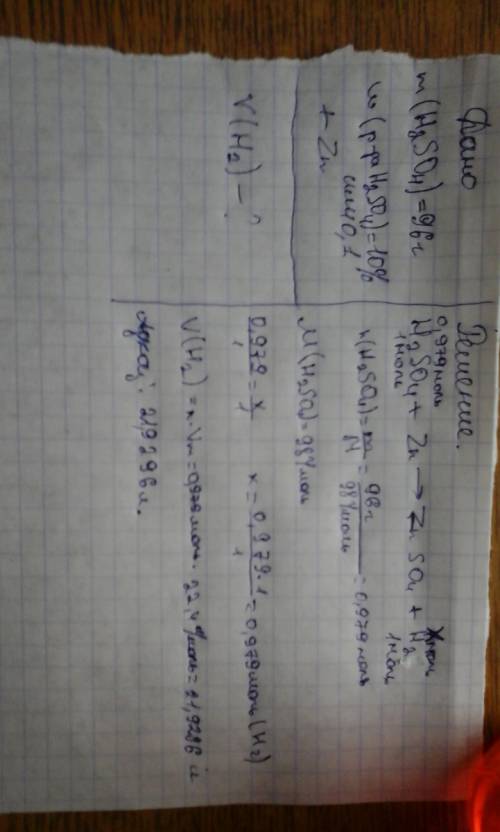 Дано
m(H₂SO₄)=96г
w(р-ра H₂SO₄)=10%
или 0,1
+ Zn
V(H₂) — ?
Решение.
0,979моль x моль
H₂SO₄ + Zn → ZnSO₄ + H₂
1моль 1моль
n(H₂SO₄)= m/M = 96г/98г/моль = 0,979моль
M(H₂SO₄)=98г/моль
0,979/1 = x/1 x= 0,979·1/1 =0,979моль(H₂)
V(H₂)=n·Vm=0,979моль·22,4л/моль=21,9296л
Ответ: 21,9296л.